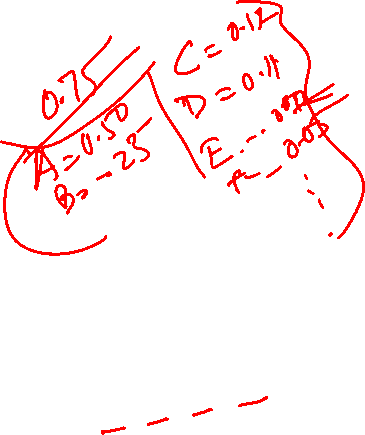 0.75
A = 0.50
B = .25
C = 0.12
D = 0.11
E
0.05